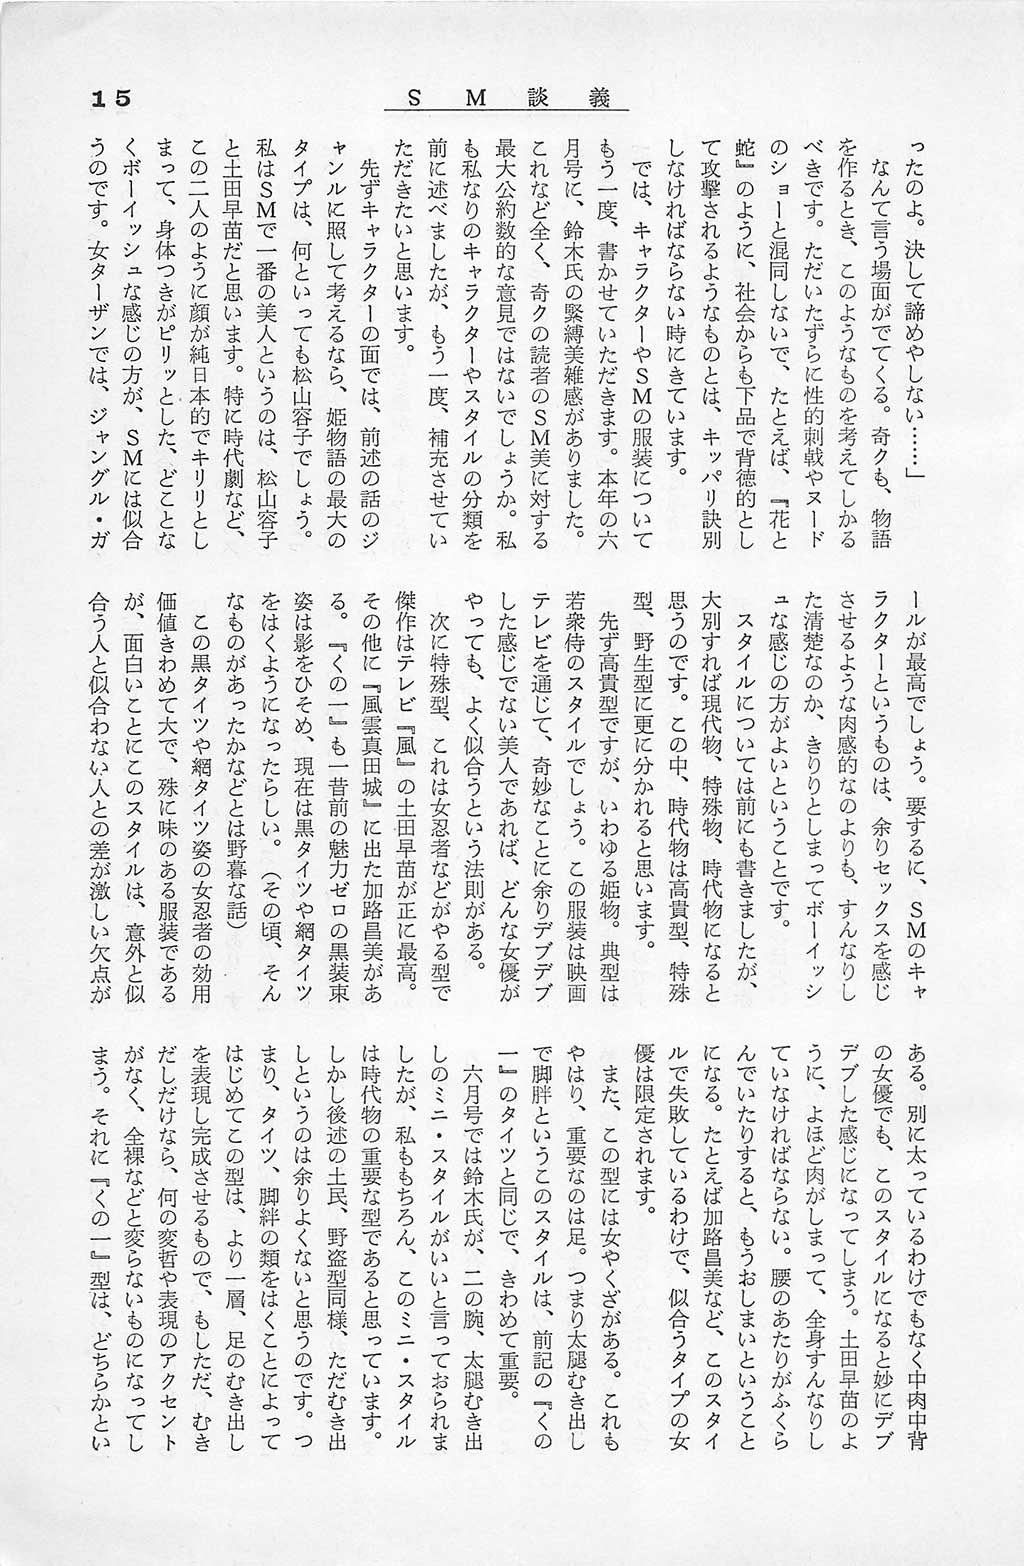 15
SM談義
ったのよ。決して諦めやしない……」
なんて言う場面がでてくる。奇クも、物語
を作るとき、このようなものを考えてしかる
べきです。ただいたずらに性的刺戟やヌード
のショーと混同しないで、たとえば、『花と
蛇』のように、社会からも下品で背徳的とし
て攻撃されるようなものとは、キッパリ訣別
しなければならない時にきています。
では、キャラクターやSMの服装について
もう一度、書かせていただきます。本年の六
月号に、鈴木氏の緊縛美雑感がありました。
これなど全く、奇クの読者のSM美に対する
最大公約数的な意見ではないでしょうか。私
も私なりのキャラクターやスタイルの分類を
前に述べましたが、もう一度、補充させてい
ただきたいと思います。
先ずキャラクターの面では、前述の話のジ
ャンルに照して考えるなら、姫物語の最大の
タイプは、何といっても松山容子でしょう。
私はSMで一番の美人というのは、松山容子
と土田早苗だと思います。特に時代劇など、
この二人のように顔が純日本的でキリリとし
まって、身体つきがピリッとした、どことな
くボーイッシュな感じの方が、SMには似合
うのです。女ターザンでは、ジャングル・ガ
ールが最高でしょう。要するに、SMのキャ
ラクターというものは、余りセックスを感じ
させるような肉感的なのよりも、すんなりし
た清楚なのか、きりりとしまってボーイッシ
ュな感じの方がよいということです。
スタイルについては前にも書きましたが、
大別すれば現代物、特殊物、時代物になると
思うのです。この中、時代物は高貴型、特殊
型、野生型に更に分かれると思います。
先ず高貴型ですが、いわゆる姫物。典型は
若衆侍のスタイルでしょう。この服装は映画
テレビを通じて、奇妙なことに余りデブデブ
した感じでない美人であれば、どんな女優が
やっても、よく似合うという法則がある。
次に特殊型、これは女忍者などがやる型で
傑作はテレビ『風』の土田早苗が正に最高。
その他に『風雲真田城』に出た加路昌美があ
る。『くの一』も一昔前の魅力ゼロの黒装束
姿は影をひそめ、現在は黒タイツや網タイツ
をはくようになったらしい。（その頃、そん
なものがあったかなどとは野暮な話）
この黒タイツや網タイツ姿の女忍者の効用
価値きわめて大で、殊に味のある服装である
が、面白いことにこのスタイルは、意外と似
合う人と似合わない人との差が激しい欠点が
ある。別に太っているわけでもなく中肉中背
の女優でも、このスタイルになると妙にデブ
デブした感じになってしまう。土田早苗のよ
うに、よほど肉がしまって、全身すんなりし
ていなければならない。腰のあたりがふくら
んでいたりすると、もうおしまいということ
になる。たとえば加路昌美など、このスタイ
ルで失敗しているわけで、似合うタイプの女
優は限定されます。
また、この型には女やくざがある。これも
やはり、重要なのは足。つまり太腿むき出し
で脚胖というこのスタイルは、前記の『くの
一』のタイツと同じで、きわめて重要。
六月号では鈴木氏が、二の腕、太腿むき出
しのミニ・スタイルがいいと言っておられま
したが、私ももちろん、このミニ・スタイル
は時代物の重要な型であると思っています。
しかし後述の土民、野盗型同様、ただむき出
しというのは余りよくないと思うのです。つ
まり、タイツ、脚絆の類をはくことによって
はじめてこの型は、より一層、足のむき出し
を表現し完成させるもので、もしただ、むき
だしだけなら、何の変哲や表現のアクセント
がなく、全裸などと変らないものになってし
まう。それに『くの一』型は、どちらかとい